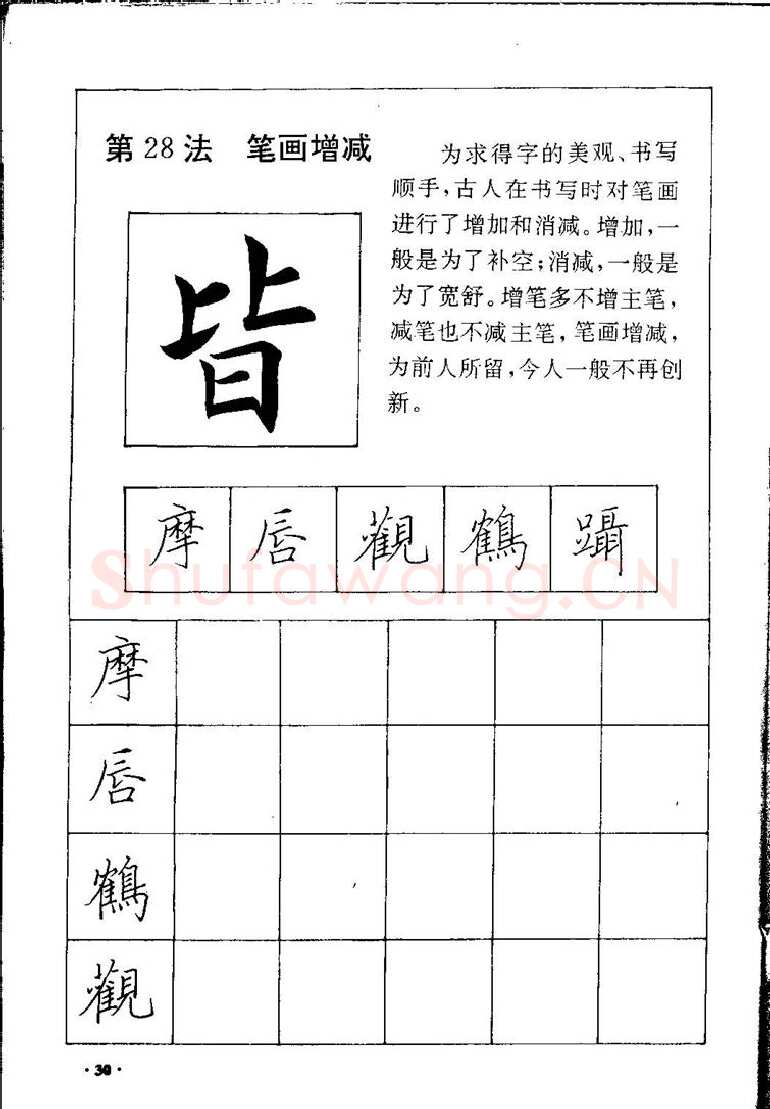 第28法 笔画增减
为求得字的美观、书写
顺手,古人在书写时对笔画
进行了增加和消减。增加,一
般是为了补空;消减,一般是
为了宽舒。增笔多不增主笔,
减笔也不减主笔,笔画增减,
为前人所留,今人一般不再创
新。
皆
摩 唇 觀 鶴 躡
Shufawang.CN
摩
唇
鶴
觀
·30·